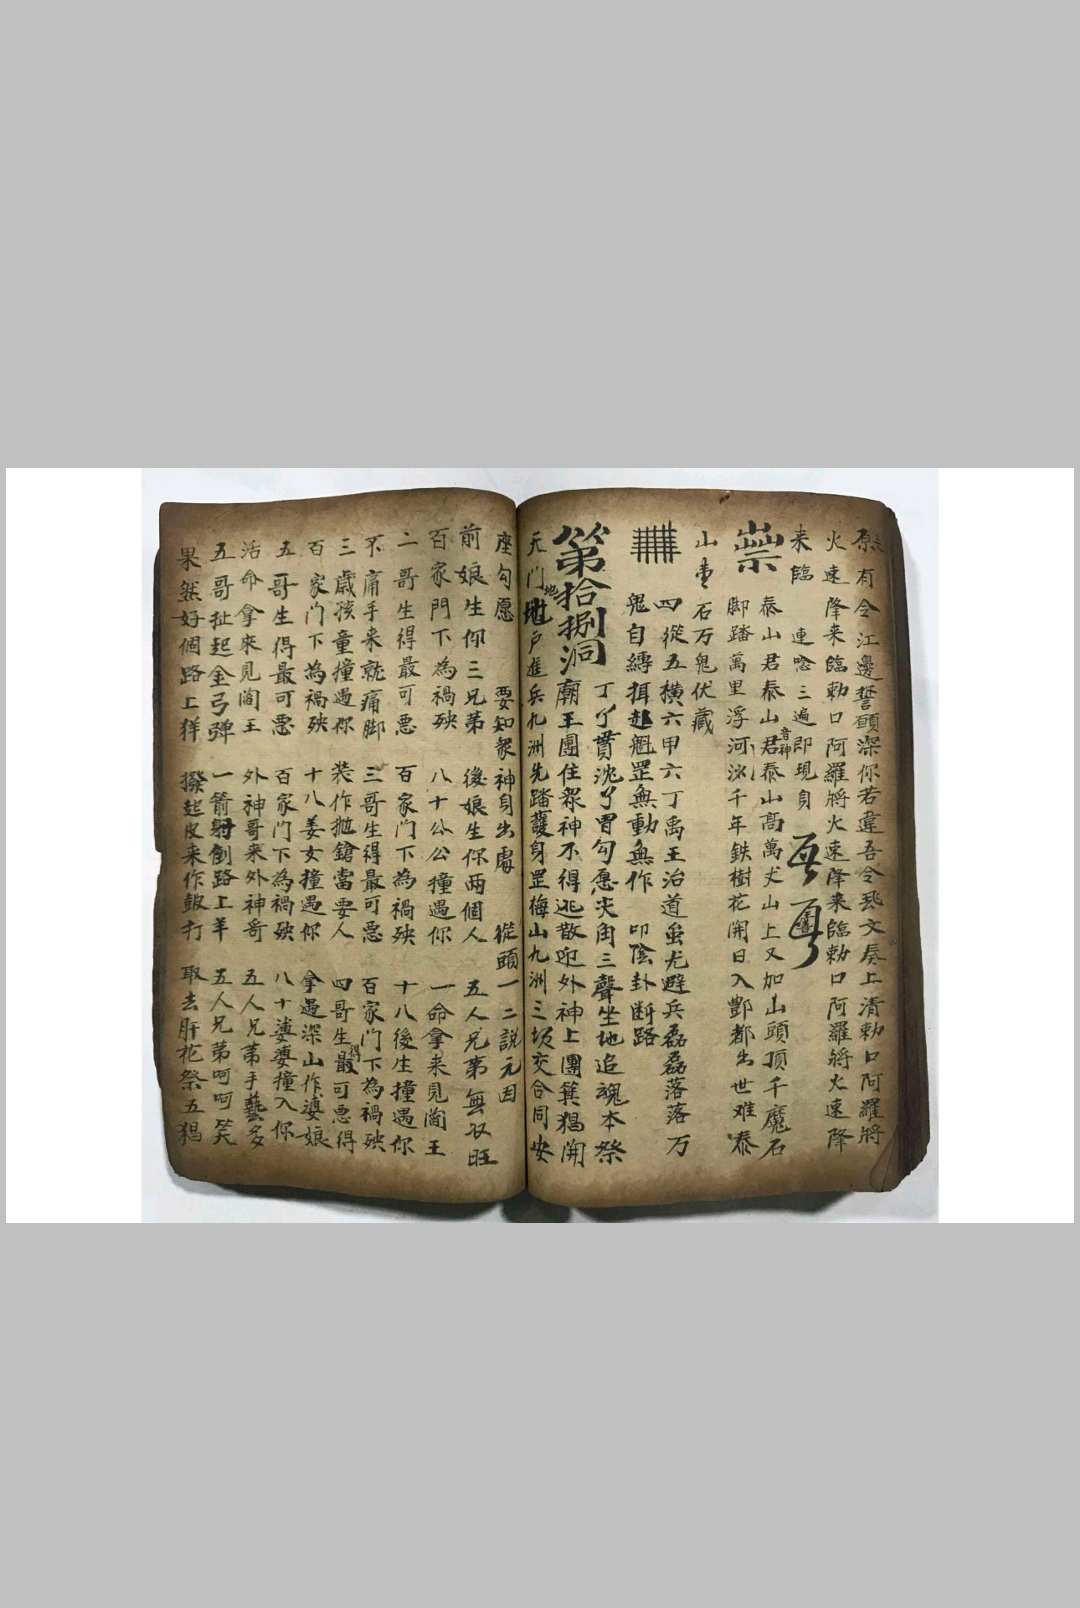 原有令江邊誓願深你若違吾令我文奏上清勅口阿羅將
火速降来臨勅口阿羅將火速降来臨勅口阿羅將火速降
来臨 連唸三遍即現身
泰山君泰山君泰山高萬丈山上又加山頭頂千魔石
脚踏萬里浮河氷千年鉄樹花開日入酆都出世难泰
山 石万鬼伏藏
四從五横六甲六丁禹王治道蚩尤避兵磊磊落落万
鬼自縛 魁罡無動無作 叩陰卦断路
勾愿尖角三聲坐地追魂本祭
第拾捌洞 廟王團住衆神不得逃散迎外神上團簑猖開
天門地户進兵九洲先踏護身罡梅山九洲三坂交合同安
座勾愿 要知衆神身出處 從頭一二說元因
前娘生你三兄弟 後娘生你两個人 五人兄弟無双旺
百家門下為禍殃 八十公公撞遇你 一命拿来見閻王
二哥生得最可悪 百家门下為禍殃 十八後生撞遇你
不痛手来就痛脚 三哥生得最可悪 百家门下為禍殃
三歲孩童撞遇你 装作拋鎗當要人 四哥生得最可悪得
百家门下為禍殃 十八姜女撞遇你 拿過深山作婆娘
五哥生得最可悪 百家门下為禍殃 八十婆婆撞入你
活命拿來見閻王 外神哥来外神哥 五人兄弟手藝多
五哥扯起金弓彈 一箭射倒路上羊 五人兄弟呵呵笑
果然好個路上羊 撥起皮来作皷打 取去肝花祭五猖